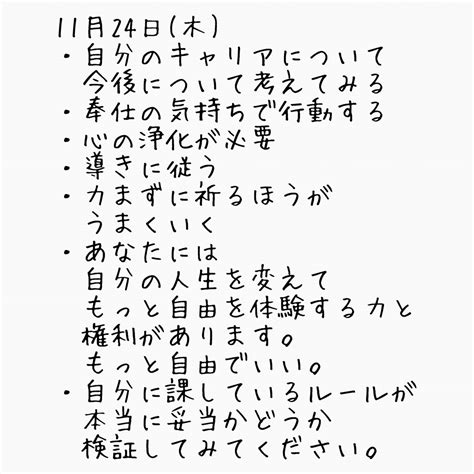 11月24日(木)
・自分のキャリアについて
今後について考えてみる
・奉仕の気持ちで行動する
・心の浄化が必要
・導きに従う
・力まずに祈るほうが
うまくいく
・あなたには
自分の人生を変えて
もっと自由を体験する力と
権利があります。
もっと自由でいい。
・自分に課しているルールが
本当に妥当かどうか
検証してみてください。